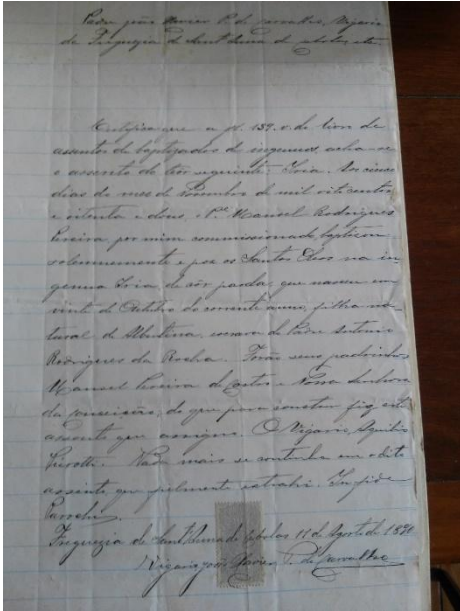 Padre João Xavier P. de Carvalho, Vigario
da Freguezia de Sant'Anna de
Certifico que a fl. 139. v. do livro de
assentos de baptizados de ingenuos, acha-se
o assento do theor seguinte: Iria. Aos cinco
dias do mez de Novembro de mil oitocentos
e oitenta e dous, o Pe. Manoel Rodrigues
Pereira, por mim commissionado baptizou
solemnemente e poz os Santos Oleos na in-
genua Iria, de côr parda, que nasceu em
vinte de Outubro do corrente anno, filha na-
tural de Albertina, escrava do Padre Antonio
Rodrigues da Rocha. Forão seus padrinhos
Manoel Pereira de Castro e Nossa Senhora
da Conceição, do que para constar fiz este
assento que assigno. O Vigario,
Nada mais se continha em o dito
assento, que fielmente extrahi. In fide
Parochi.
Freguezia de Sant'Anna de 11 de Agosto de
Vigario João Xavier P. de Carvalho